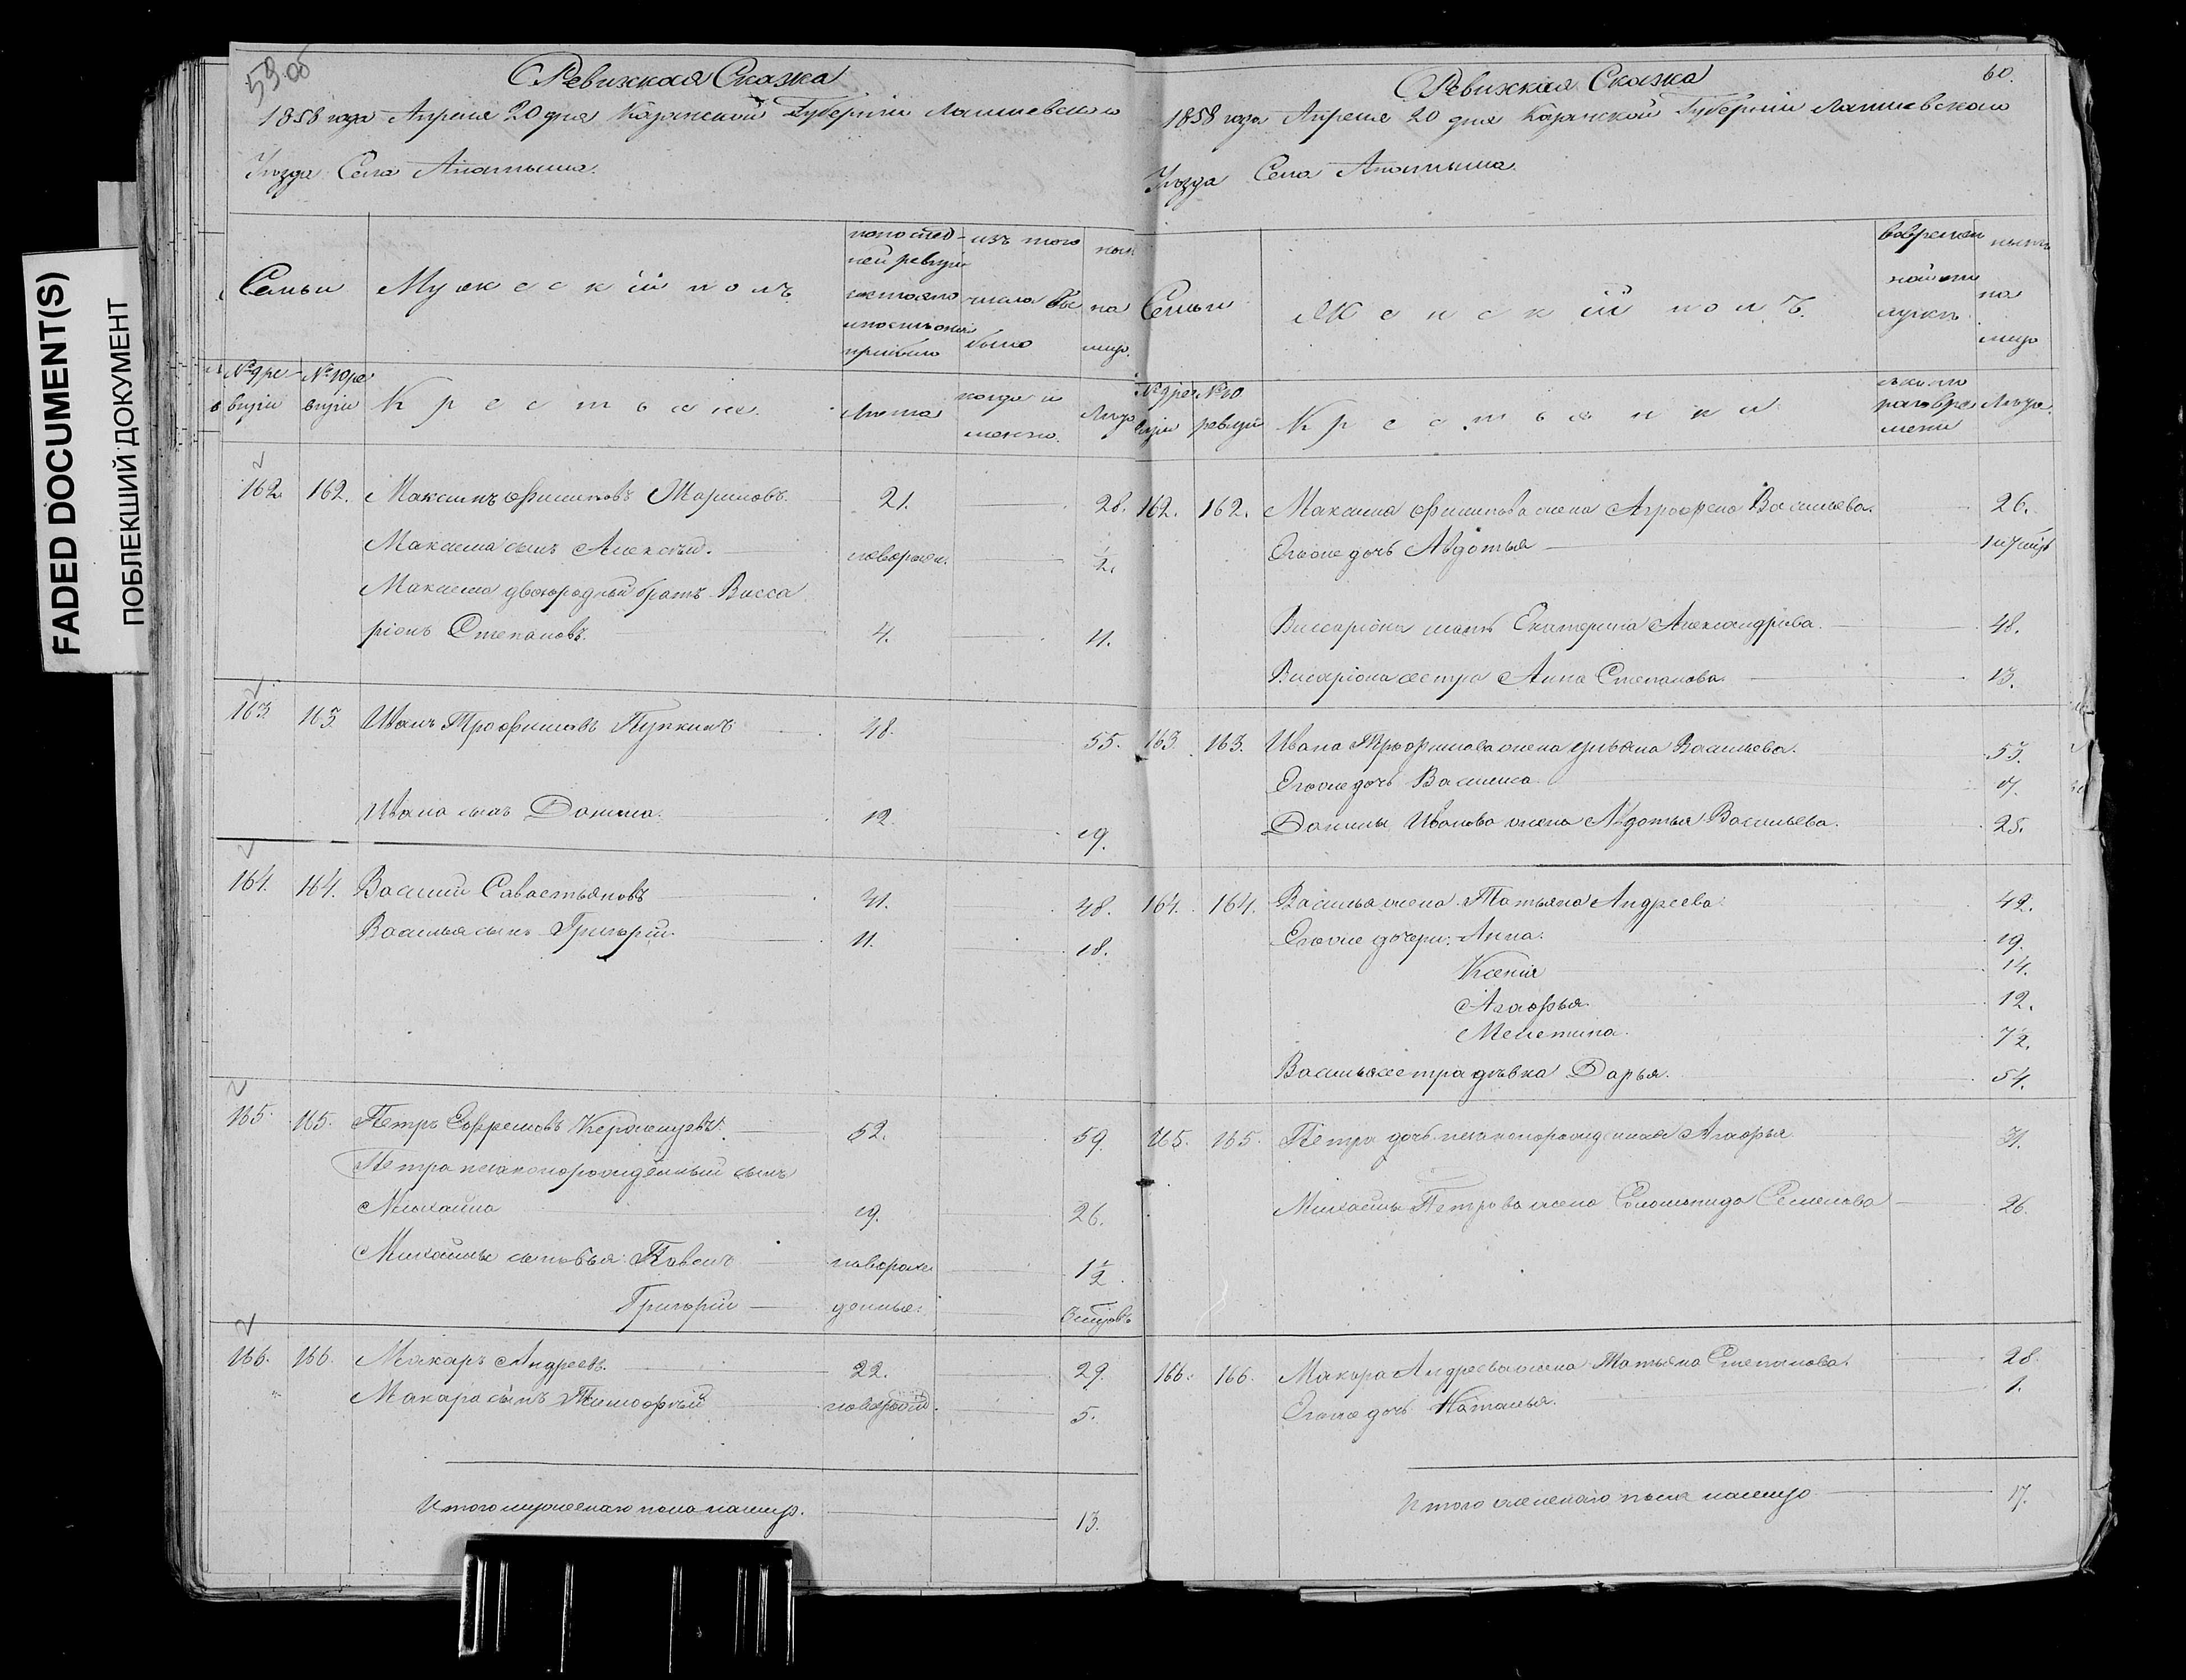 FADED DOCUMENT(S)
ПОБЛЕКШИЙ ДОКУМЕНТ
59 об
Ревижская Сказка
1858 года Апреля 20 дня Казанской Губернии Лаишевскаго
Уѣзда Села Анатыша.
Семьи
Мужескій полъ
по послѣд-
ней ревизіи
состояло
и послѣ оной
прибыло
изъ того
числа вы
было
на
лицо.
№ 9 ре
визіи
№ 10 ре
визіи
Крестьяне.
Лѣта
когда и
менно.
Лѣта
162. 162. Максимъ Филиповъ Мариновъ. 21. 28.
Максима сынъ Алексѣй. новорож. 1/2.
Максима двоюродный братъ Висса
ріонъ Степановъ. 4. 11.
163 163 Иванъ Трофимовъ Пупкинъ 48. 55.
Ивана сынъ Данила. 12. 19.
164. 164. Василій Савастьяновъ 41. 48.
Василья сынъ Григорій. 11. 18.
165. 165. Петръ Ефремовъ 52. 59.
Петра незаконорожденный сынъ
Михаила 19. 26.
Михайлы сыновья: Павелъ новорож 1 1/2.
Григорій денные.
166. 166. Макаръ Андреевъ. 22. 29.
Макара сынъ Тимофѣй 5.
Итого мужескаго пола налицо. 13.
60.
Ревижская Сказка
1858 года Апреля 20 дня Казанской Губерніи Лаишевскаго
Уѣзда Села Анатыша.
Семьи
Женскій полъ.
во времен
ной от
лучкѣ
нынѣ
на
лицо
№ 9 ре
визіи
№ 10
ревизіи
Крестьянки
съ кото
раго вре
мени
Лѣта.
162. 162. Максима Филипова жена Аграфена Васильева. 26.
Егоже дочь Авдотья
Висаріона мать Екатерина Александрова. 48.
Висаріона сестра Анна Степанова. 13.
163. 163. Ивана Трофимова жена Ульяна Васильева. 53.
Егоже дочь Василиса. 17.
Данилы Иванова жена Авдотья Васильева. 25.
164. 164. Василья жена Татьяна Андреева. 42.
Егоже дочери: Анна. 19.
Ксенія 14.
Агафья. 12.
Мелетина. 7 1/2.
Василья сестра дѣвка Дарья. 54.
165. 165. Петра дочь незаконорожденная Агафья 31.
Михайлы Петрова жена Соломонида Семенова 26.
166. 166. Макара Андреева жена Татьяна Степанова. 28.
Егоже дочь Наталья. 1.
Итого женскаго пола налицо 17.